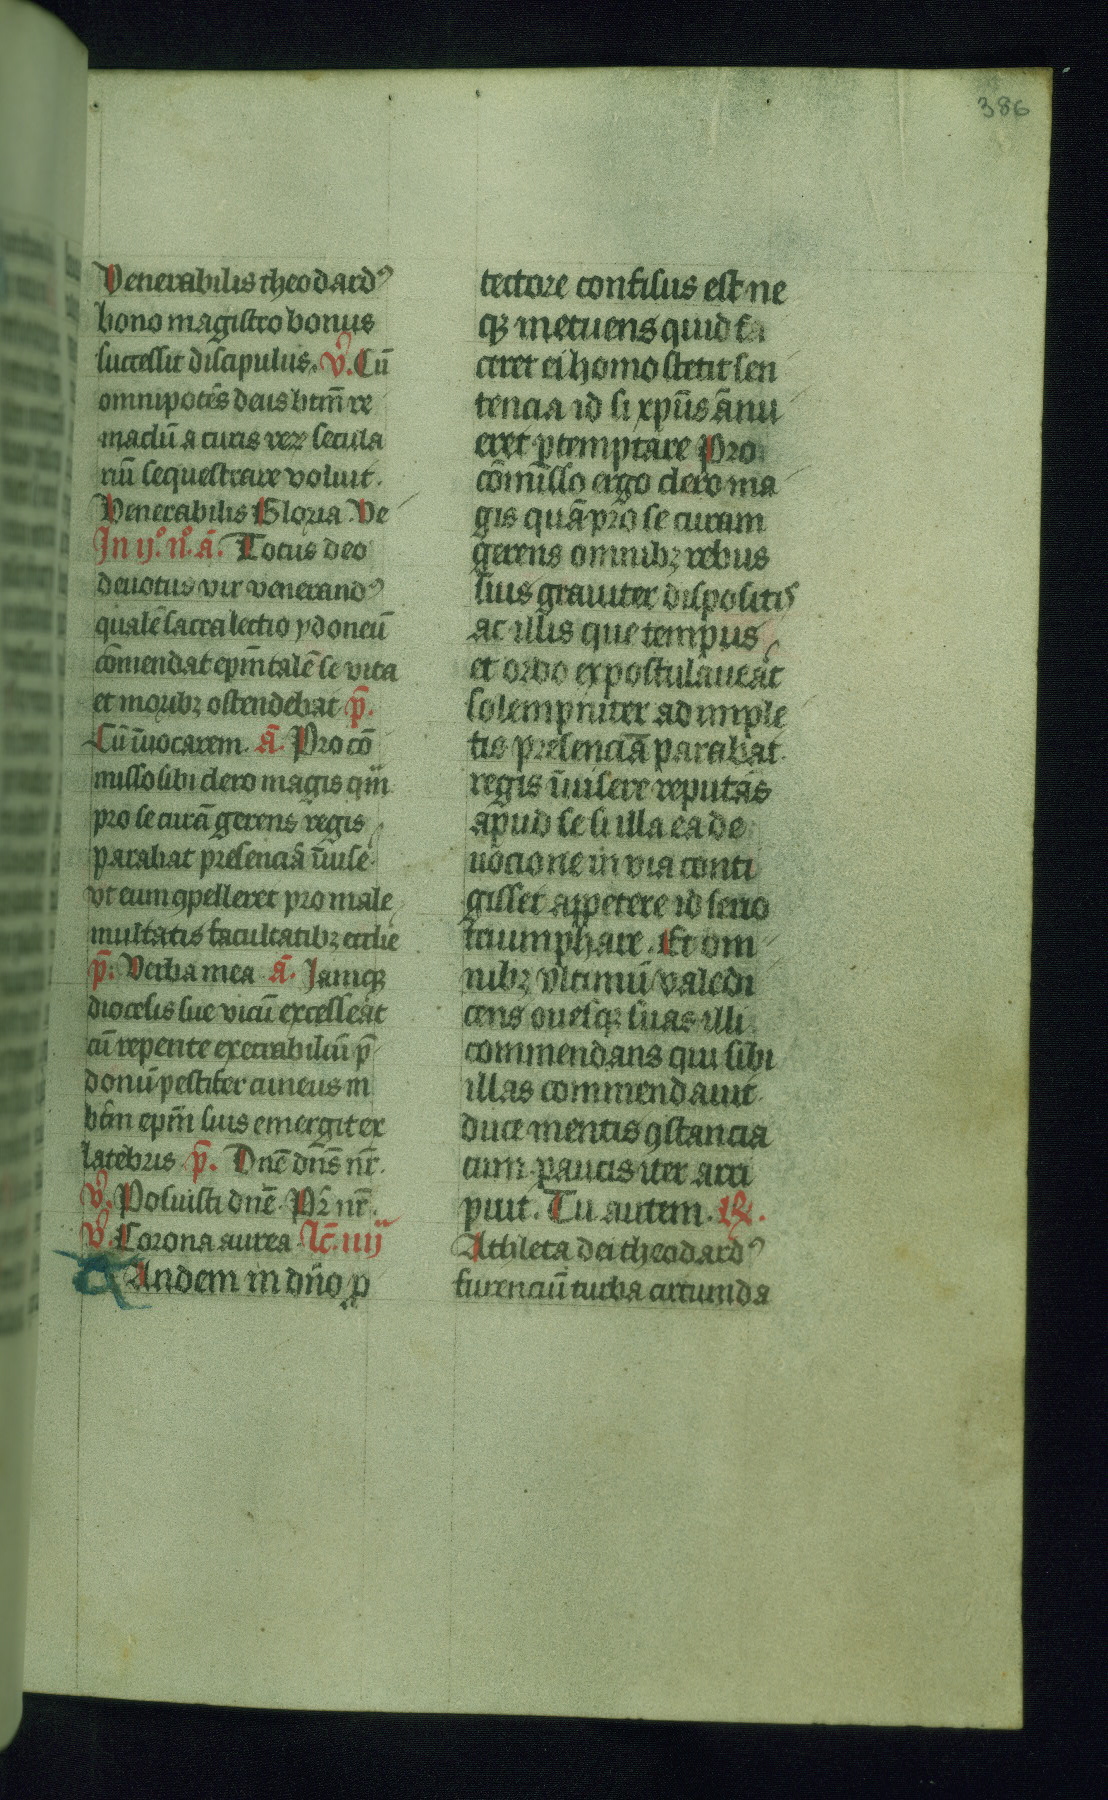 386
Venerabilis theodardꝰ
bono magistro bonus
successit discipulus. V̊. Cū
omnipotēs deus btm̄ re
maclū a curis reꝝ secula
riū sequestrare voluit.
Venerabilis Gloria. Ve
In ij.º n̊. ā. Totus deo
deuotus vir venerandꝰ
qualē sacra lectio ydoneū
cōmendat ep̄m talē se vita
et moribꝫ ostendebat. p̄.
Cū īuocarem. ā. Pro cō
misso sibi clero magis qm̄
pro se curā gerens regis
parabat presenciā īuise
vt eum ꝯpelleret pro male
multatis facultatibꝫ ecclie
p̄. Verba mea ā. Jamqꝫ
diocesis sue vicū excesseāt
cū repente execrabiliū p̄
donū pestifer cuneus in
btm̄ ep̄m suis emergit ex
latebris p̄. Dn̄e dn̄s nr̄.
V̊. Posuisti dn̄e. Pr̄ nr̄.
V̊. Corona aurea. lc̄. iiij
TAndem in dn̄o ꝓ
tectore confisus est ne
qꝫ metuens quid fa
ceret ei homo stetit sen
tencia id si xp̄us ānu
eret ꝑtemptare Pro
cōmisso ergo clero ma
gis quā pro se curam
gerens omnibꝫ rebus
suis grauiter dispositis
ac illis que tempus
et ordo expostulaueāt
solempniter ad imple
tis presenciā parabat
regis īuisere reputās
apud se si illa ea de
uocione in via conti
gisset appetere id ferro
triumphare. Et om
nibꝫ vltimū valedi
cens ouesqꝫ suas illi
commendans qui sibi
illas commendauit
duce mentis ꝯstancia
cum paucis iter arri
puit. Tu autem. R̷.
Athleta dei theodardꝰ
furenciū turba circumda